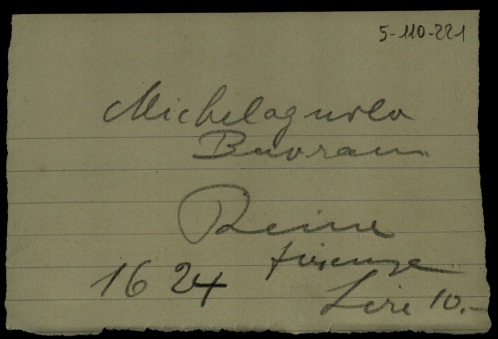 5-110-221
Michelagnolo
Buonaro
Rime
firenze
1624
Lire 10.-